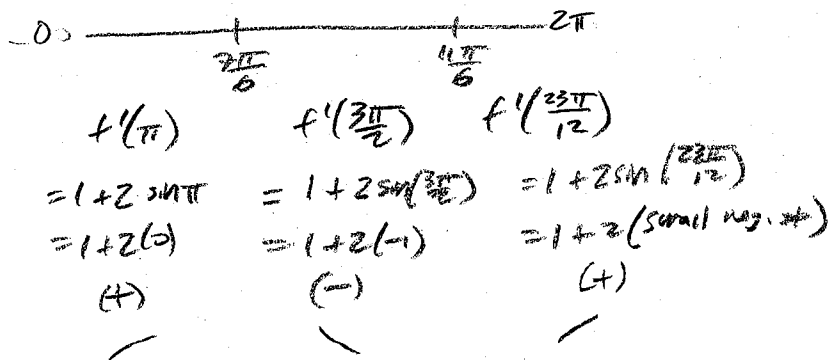 0 2π
7π/6 11π/6
f'(π) f'(3π/2) f'(23π/12)
=1+2 sinπ = 1+2 sin(3π/2) =1+2sin(23π/12)
=1+2(0) =1+2(-1) =1+2(small neg. #)
(+) (-) (+)